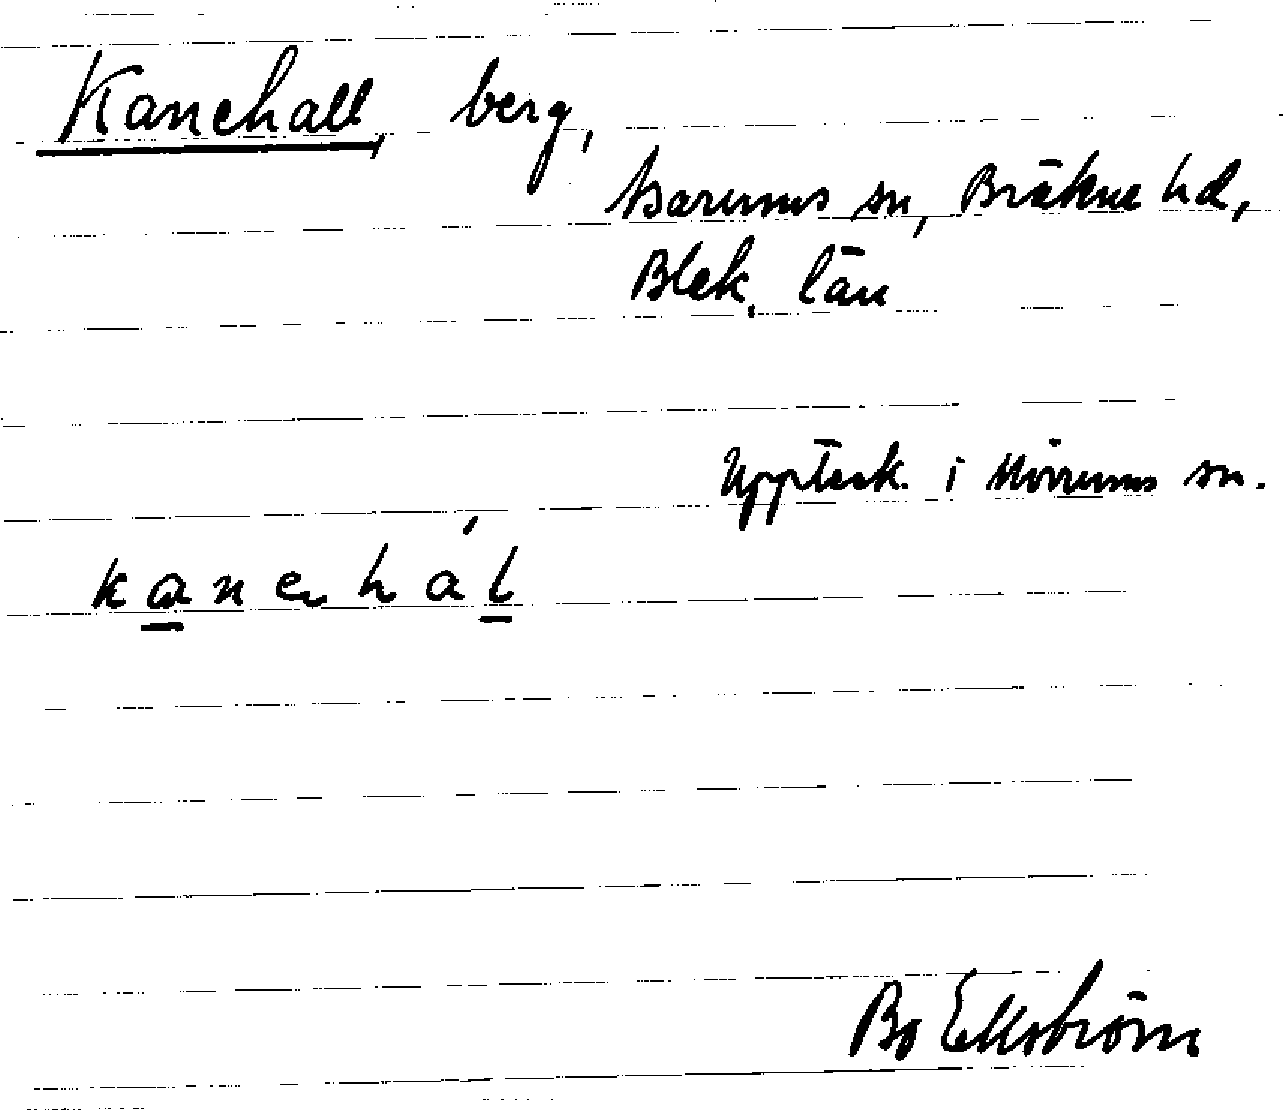 Kanehall, berg,
Asarums sn, Bräkne hd,
Blek. län
Uppteck. i Mörrums sn.
kanehál
Bo Ekström